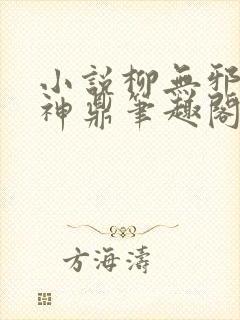 小說柳無邪
神鼎筆趣閣
方海濤